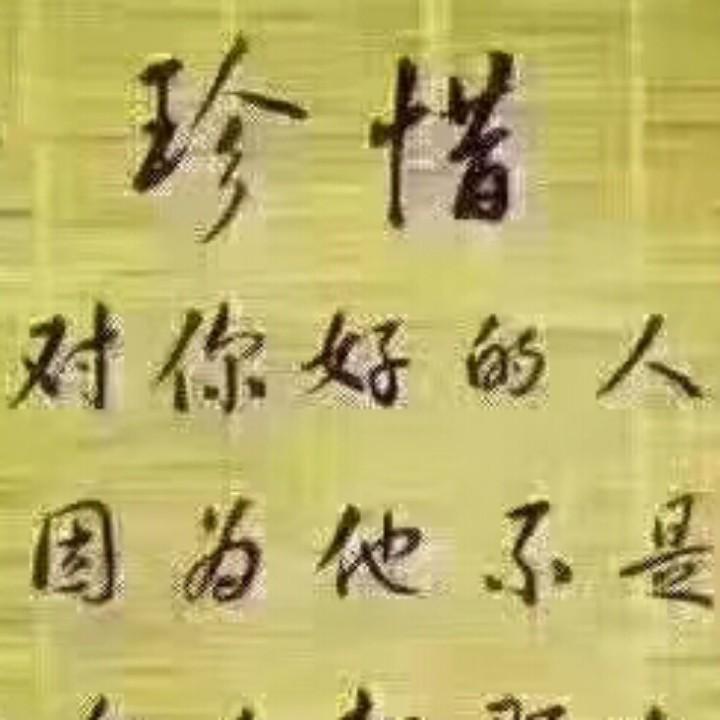 珍惜
对你好的人
因为他不是